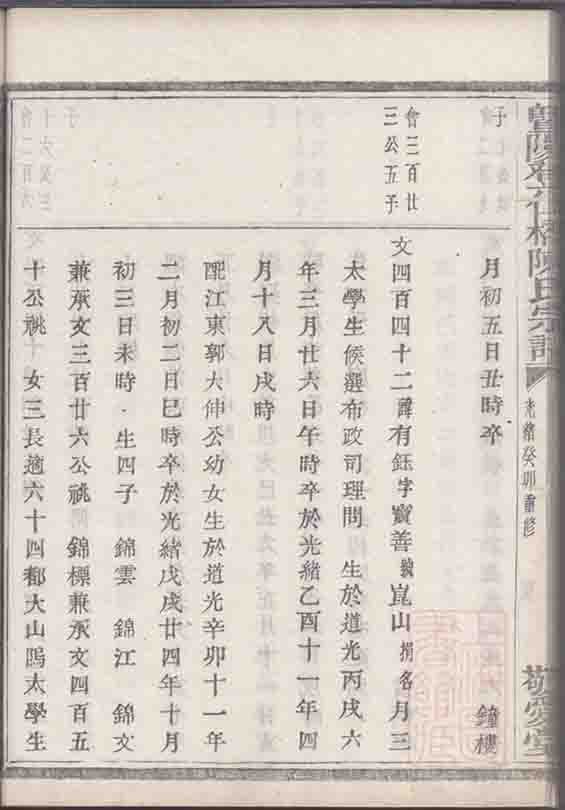 暨陽孝仁橋陳氏宗譜
光緒癸卯重修
敬愛堂
子
月初五日丑時卒
鐘樓
會三百廿
三公五子
文四百四十二諱有鈺字寶善號崑山捐名月三
太學生候選布政司理問 生於道光丙戌六
年三月廿六日午時卒於光緒乙酉十一年四
月十八日戌時
配江東郭大伸公幼女生於道光辛卯十一年
二月初二日巳時卒於光緒戊戌廿四年十月
初三日未時·生四子 錦雲 錦江 錦文
兼承文三百廿六公祧 錦標兼承文四百五
十公祧 女三長適六十四都大山塢太學生